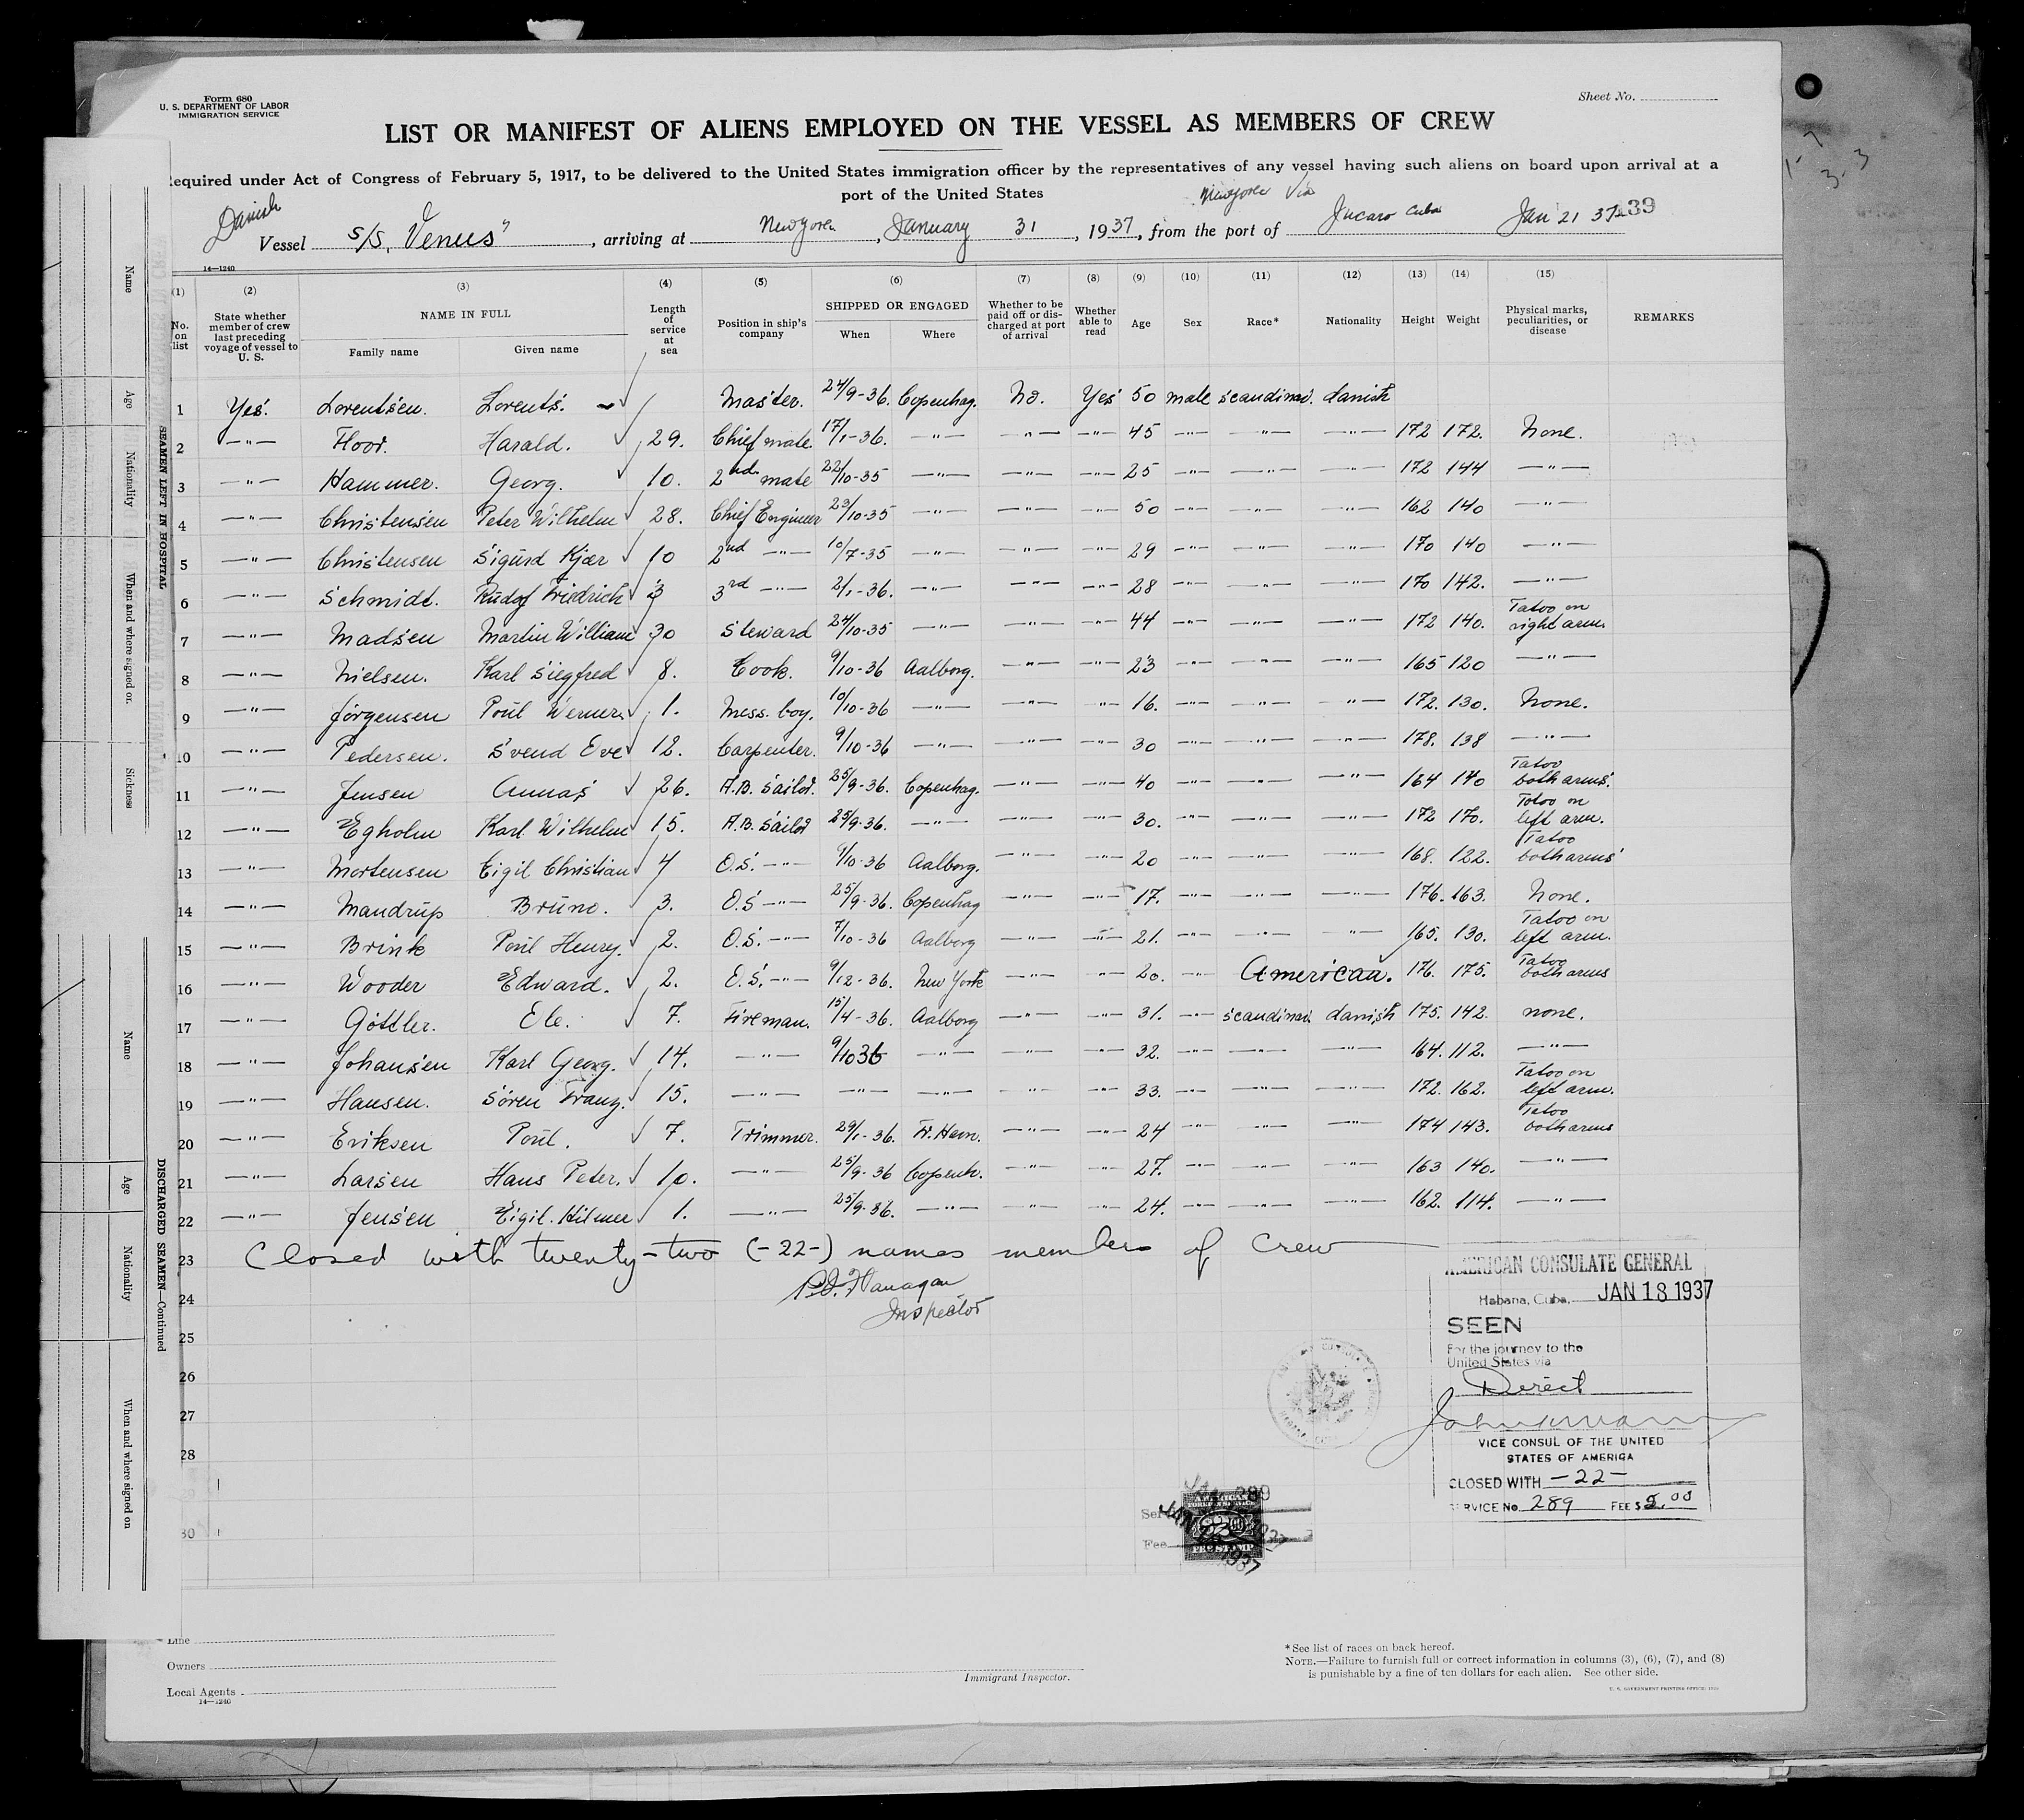 Form 680
U. S. DEPARTMENT OF LABOR
IMMIGRATION SERVICE
Sheet No.
LIST OR MANIFEST OF ALIENS EMPLOYED ON THE VESSEL AS MEMBERS OF CREW
equired under Act of Congress of February 5, 1917, to be delivered to the United States immigration officer by the representatives of any vessel having such aliens on board upon arrival at a
port of the United States
Newyork Via
Danish
Vessel S/S, Venus", arriving at Newyork, January 31, 1937, from the port of Jucaro Cuba Jan 21 37 39
14—1240
(1) (2) (3) (4) (5) (6) (7) (8) (9) (10) (11) (12) (13) (14) (15)
No. on list
State whether member of crew last preceding voyage of vessel to U. S.
NAME IN FULL
Family name Given name
Length of service at sea
Position in ship's company
SHIPPED OR ENGAGED
When Where
Whether to be paid off or discharged at port of arrival
Whether able to read
Age Sex Race* Nationality Height Weight
Physical marks, peculiarities, or disease
REMARKS
1 Yes. Lorentsen. Lorents. Master. 24/9-36. Copenhag. No. Yes 50 male scandinav. danish
2 —"— Floor. Harald. 29. Chief mate. 17/1-36. —"— —"— —"— 45 —"— —"— —"— 172 172. None.
3 —"— Hammer. Georg. 10. 2nd mate 22/10-35 —"— —"— —"— 25 —"— —"— —"— 172 144 —"—
4 —"— Christensen Peter Wilhelm 28. Chief Engineer 23/10-35 —"— —"— —"— 50 —"— —"— —"— 162 140 —"—
5 —"— Christensen Sigurd Kjær 10 2nd —"— 10/7-35 —"— —"— —"— 29 —"— —"— —"— 170 140 —"—
6 —"— Schmidt. Rudof Friedrich 3 3rd —"— 2/1-36. —"— —"— —"— 28 —"— —"— —"— 170 142. —"—
7 —"— Madsen Martin William 30 Steward 24/10-35 —"— —"— —"— 44 —"— —"— —"— 172 140. Tatoo on right arm
8 —"— Nielsen. Karl Siegfred 8. Cook. 9/10-36 Aalborg. —"— —"— 23 —"— —"— —"— 165 120 —"—
9 —"— Jörgensen Poul Werner. 1. Mess. boy. 10/10-36 —"— —"— —"— 16. —"— —"— —"— 172. 130. None.
10 —"— Pedersen. Svend Eve 12. Carpenter. 9/10-36 —"— —"— —"— 30 —"— —"— —"— 178. 138 —"—
11 —"— Jensen Annas 26. A.B. Sailor. 25/9-36. Copenhag. —"— —"— 40 —"— —"— —"— 164 140 Tatoo both arms.
12 —"— Egholm Karl Wilhelm 15. A.B. Sailor 25/9-36. —"— —"— —"— 30. —"— —"— —"— 172 170. Tatoo on left arm.
13 —"— Mortensen Eigil Christian 4 O.S. —"— 9/10-36 Aalborg. —"— —"— 20 —"— —"— —"— 168. 122. Tatoo both arms
14 —"— Mandrup Bruno. 3. O.S —"— 25/9-36. Copenhag —"— —"— 17. —"— —"— —"— 176. 163. None.
15 —"— Brink Poul Henry. 2. O.S. —"— 7/10-36 Aalborg —"— —"— 21. —"— —"— —"— 165. 130. Tatoo on left arm.
16 —"— Wooder Edward. 2. O.S. —"— 9/12-36. New York —"— —"— 20. —"— American. 176. 175. Tatoo both arms
17 —"— Göttler. Ele. 7. Fireman. 15/4-36. Aalborg —"— —"— 31. —"— scandinav. danish 175. 142. none.
18 —"— Johansen Karl Georg. 14. —"— 9/10 36 —"— —"— —"— 32. —"— —"— —"— 164. 112. —"—
19 —"— Hansen. Sören Franz. 15. —"— —"— —"— —"— —"— 33. —"— —"— —"— 172. 162. Tatoo on left arm.
20 —"— Eriksen Poul. 7. Trimmer. 29/1-36. Fr. Havn. —"— —"— 24 —"— —"— —"— 174 143. Tatoo both arms
21 —"— Larsen Hans Peter. 10. —"— 25/9-36 Copenh. —"— —"— 27. —"— —"— —"— 163 140. —"—
22 —"— Jensen Eigil. Hilmer 1. —"— 25/9-36. —"— —"— —"— 24. —"— —"— —"— 162. 114. —"—
23 Closed with twenty-two (-22-) names members of crew
24 P.J. Flanagan
Inspector
25
26
27
28
30
AMERICAN CONSULATE GENERAL
Habana, Cuba, JAN 18 1937
SEEN
For the journey to the
United States via
Direct
VICE CONSUL OF THE UNITED
STATES OF AMERICA
CLOSED WITH -22-
SERVICE No. 289 FEE $ 2.00
289
Fee
FEE STAMP
1937
Line
Owners
Local Agents
14—1240
Immigrant Inspector.
*See list of races on back hereof.
NOTE.—Failure to furnish full or correct information in columns (3), (6), (7), and (8)
is punishable by a fine of ten dollars for each alien. See other side.
U. S. GOVERNMENT PRINTING OFFICE
SEAMEN LEFT IN HOSPITAL
Name
Age
Nationality
When and where signed on
Sickness
DISCHARGED SEAMEN—Continued
Name
Age
Nationality
When and where signed on